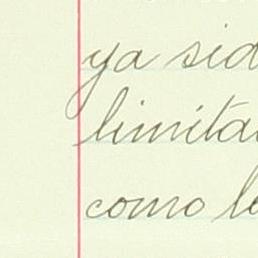 ya sid
limita
como le